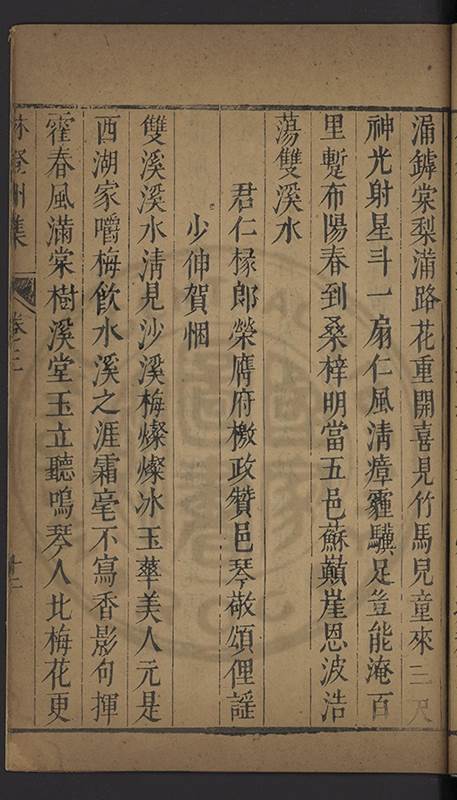 漏鏬棠梨滿路花重開喜見竹馬兒童來三尺
神光射星斗一扇仁風淸瘴霾驥足豈能淹百
里蹔布陽春到桑梓明當五邑蘇巔崖恩波浩
蕩雙溪水
君仁椽郎榮膺府檄政贊邑琴敬頌俚謡
少伸賀悃
雙溪溪水淸見沙溪梅燦燦冰玉華美人元是
西湖家嚼梅飲水溪之涯霜毫不寫香影句揮
霍春風滿棠樹溪堂玉立聽鳴琴人比梅花更
林登州集
卷三
十二